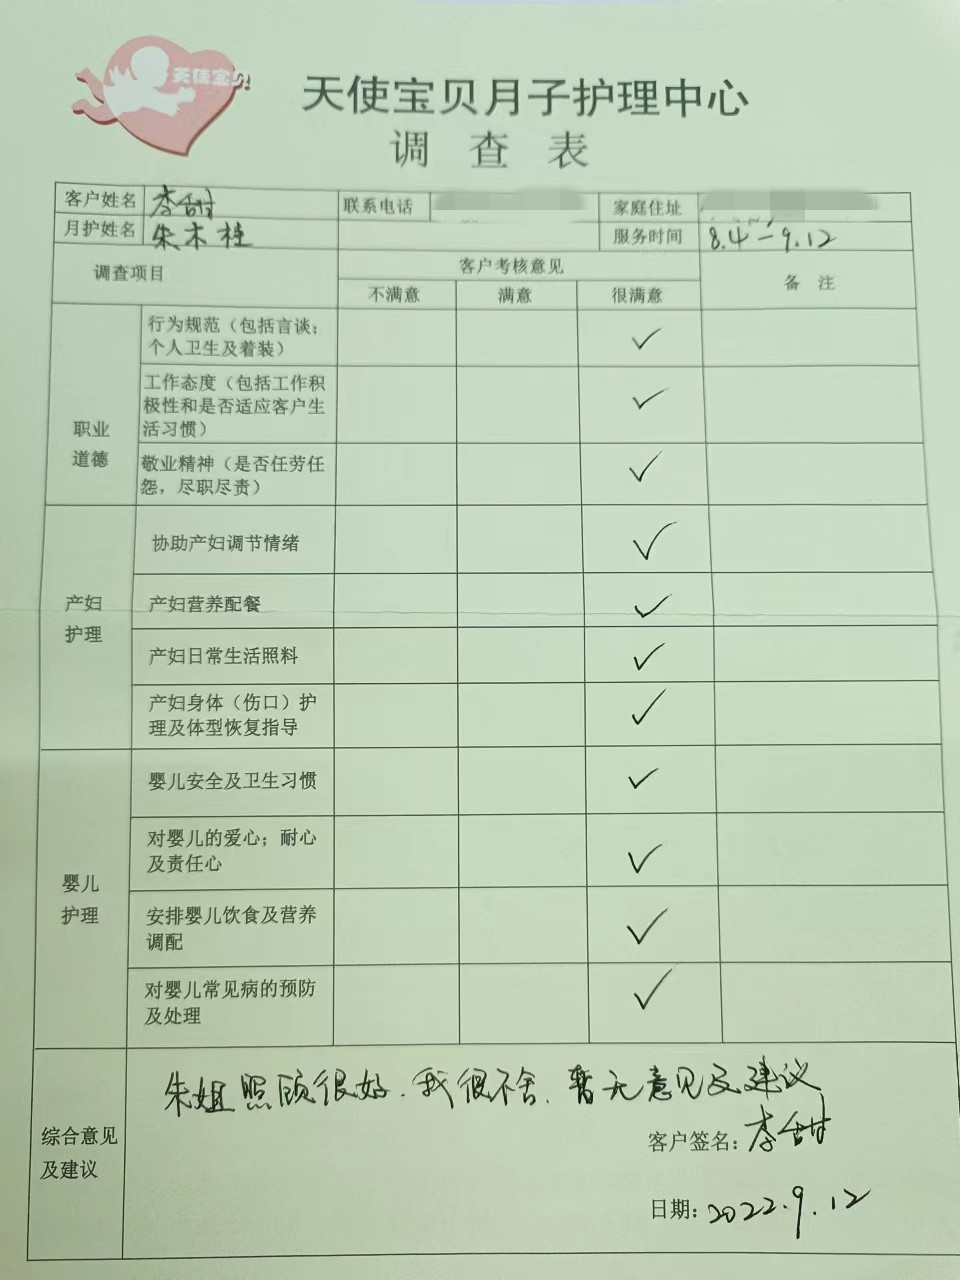 天使宝贝
天使宝贝月子护理中心
调 查 表
客户姓名 李甜 联系电话 家庭住址
月护姓名 朱木桂 服务时间 8.4－9.12
调查项目 客户考核意见 备 注
不满意 满意 很满意
职业
道德
行为规范（包括言谈；
个人卫生及着装） ✓
工作态度（包括工作积
极性和是否适应客户生
活习惯） ✓
敬业精神（是否任劳任
怨，尽职尽责） ✓
产妇
护理
协助产妇调节情绪 ✓
产妇营养配餐 ✓
产妇日常生活照料 ✓
产妇身体（伤口）护
理及体型恢复指导 ✓
婴儿
护理
婴儿安全及卫生习惯 ✓
对婴儿的爱心；耐心
及责任心 ✓
安排婴儿饮食及营养
调配 ✓
对婴儿常见病的预防
及处理 ✓
综合意见
及建议
朱姐照顾很好.我很不舍.暂无意见及建议
客户签名：李甜
日期：2022.9.12